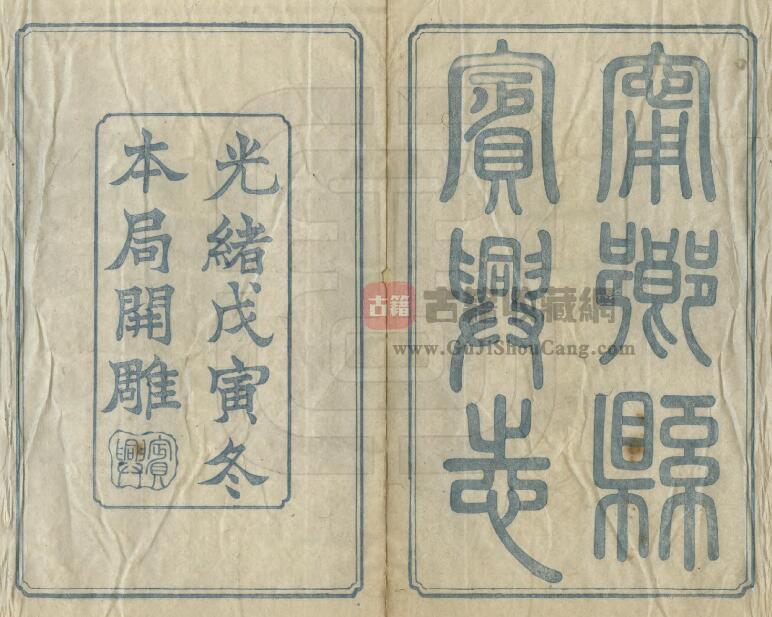 甯鄉縣
賓興志
光緒戊寅冬
本局開雕
賓興
古籍
古籍收藏網
www.GuJiShouCang.com